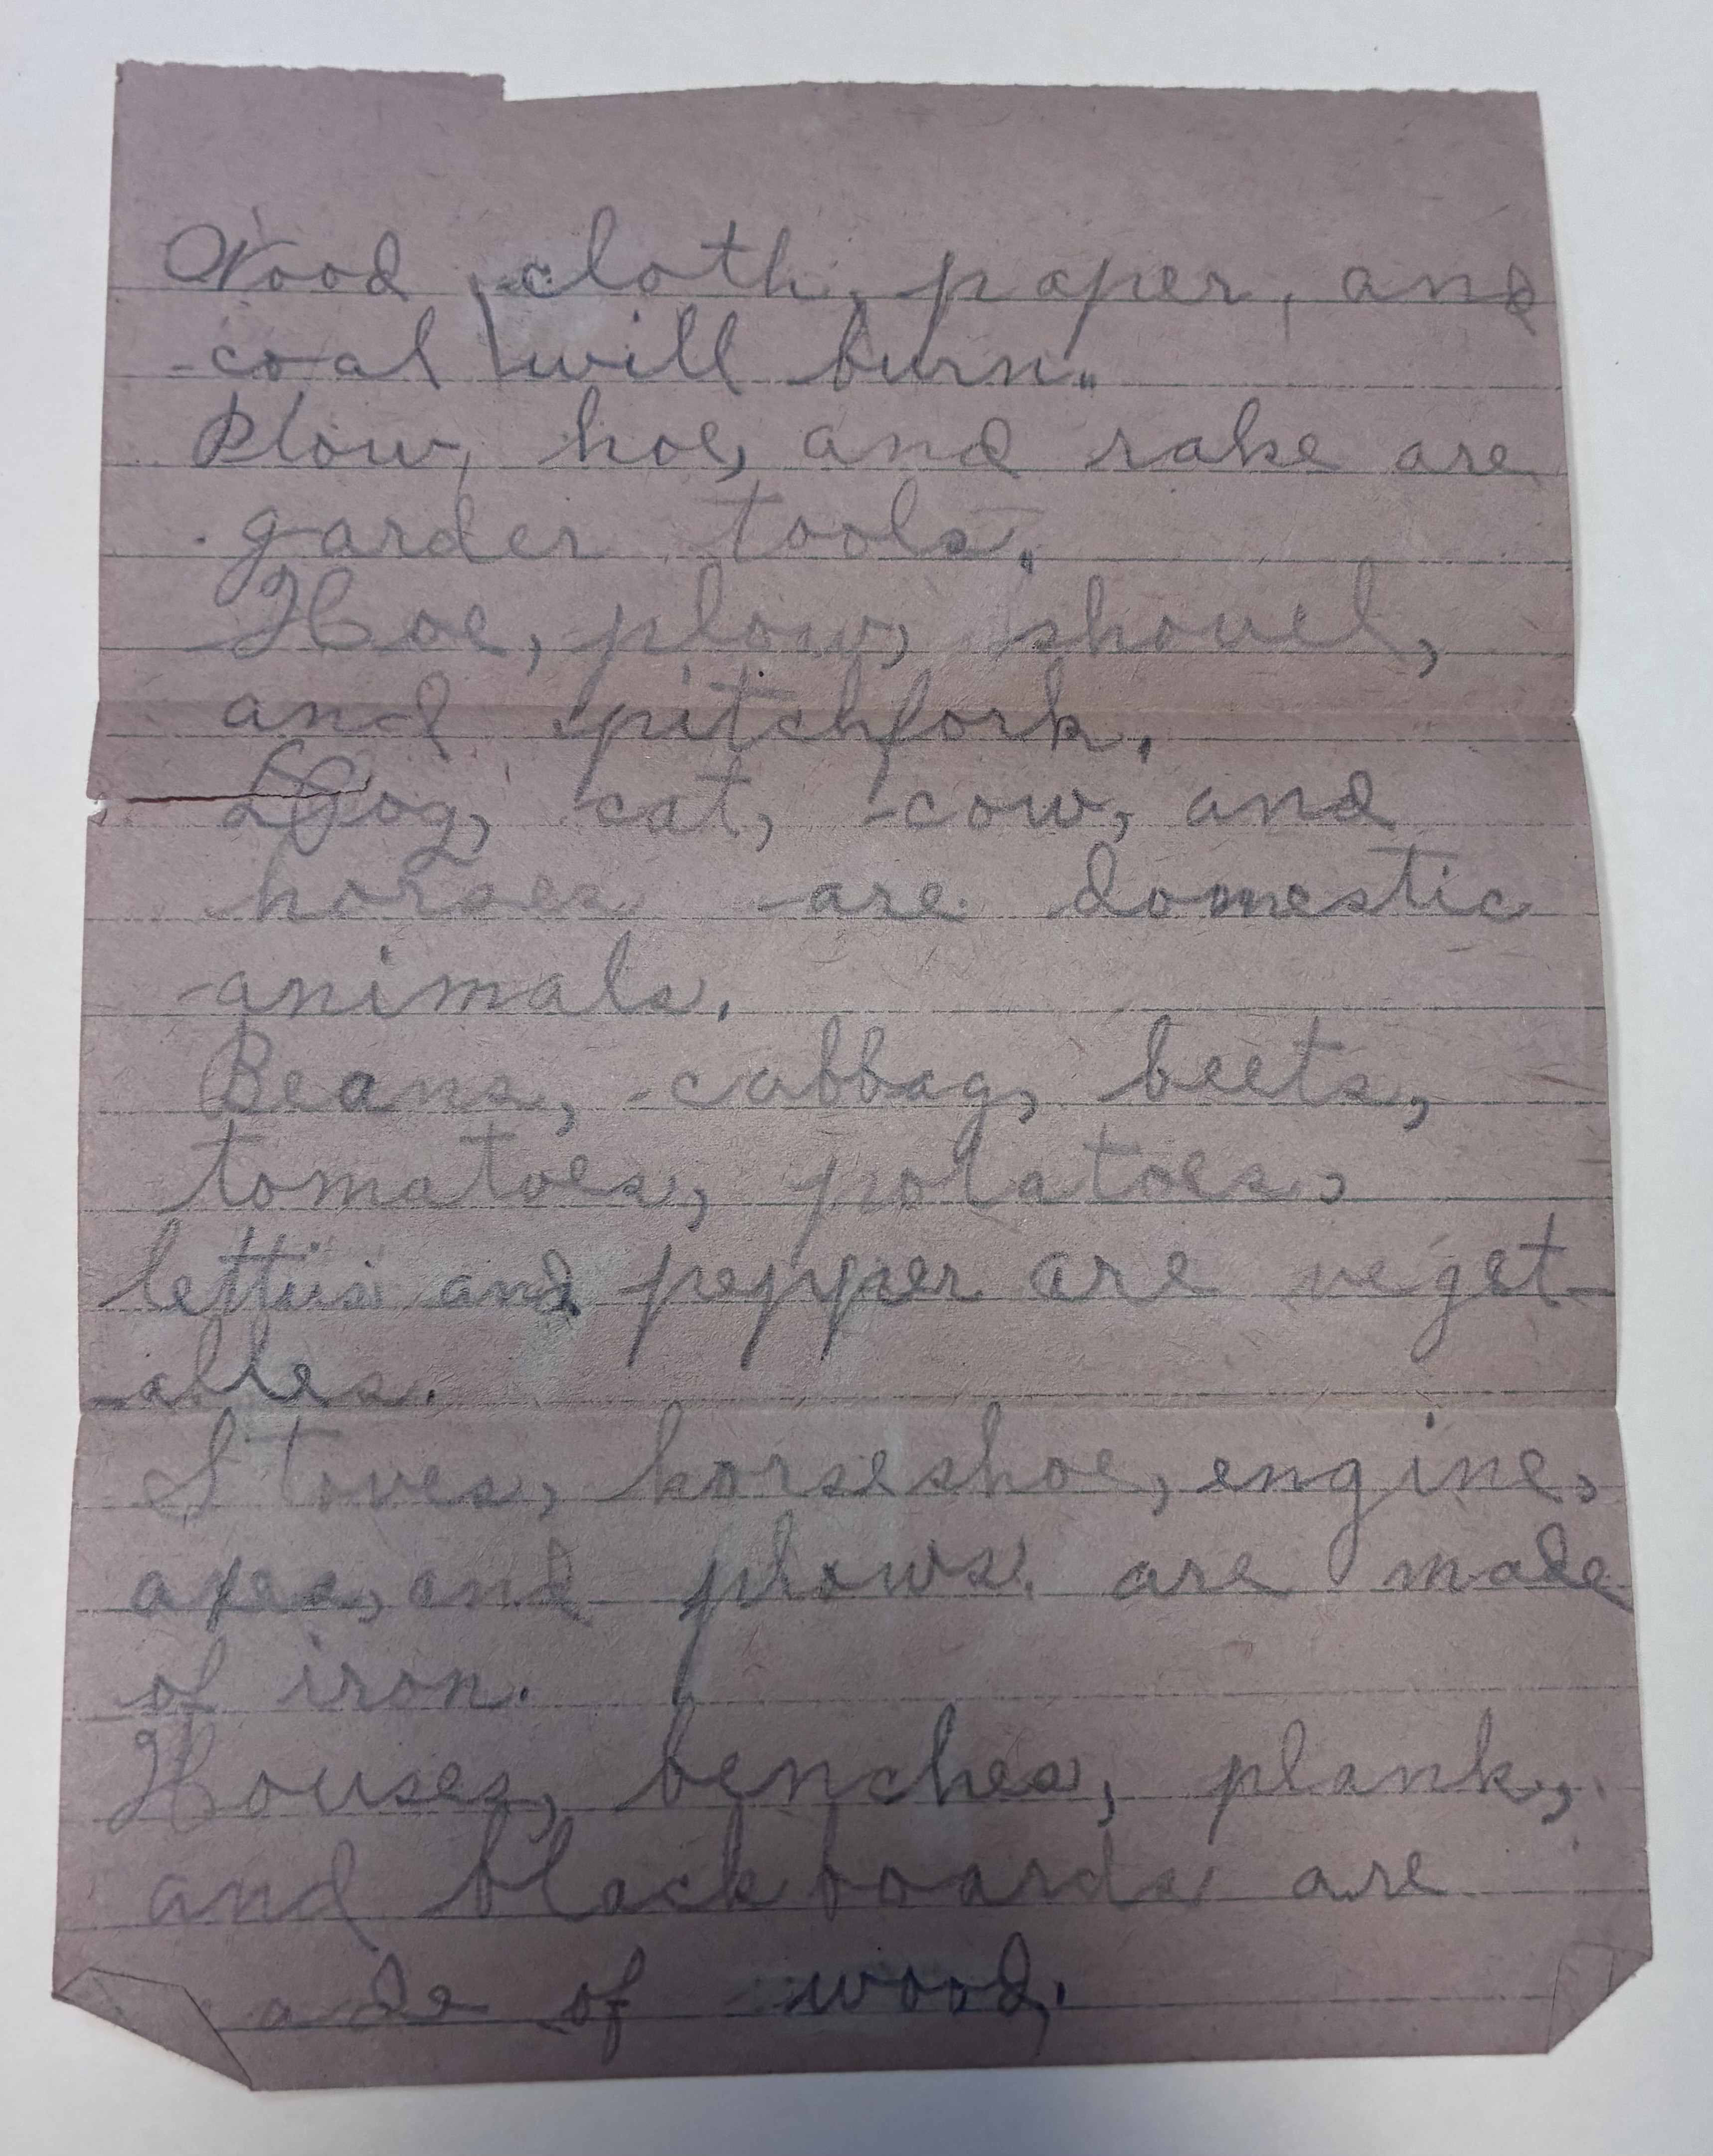 Wood, cloth, paper, and
coal will burn.
Plow, hoe, and rake are
garder tools.
Hoe, plow, shovel,
and pitchfork.
Dog, cat, cow, and
horses are domestic
animals.
Beans, cabbag, beets,
tomatoes, potatoes,
lettus and pepper are veget-
ables.
Stoves, horseshoe, engine,
axes, and plows. are made
of iron.
Houses, benches, plank,
and blackboards are
ade of wood.